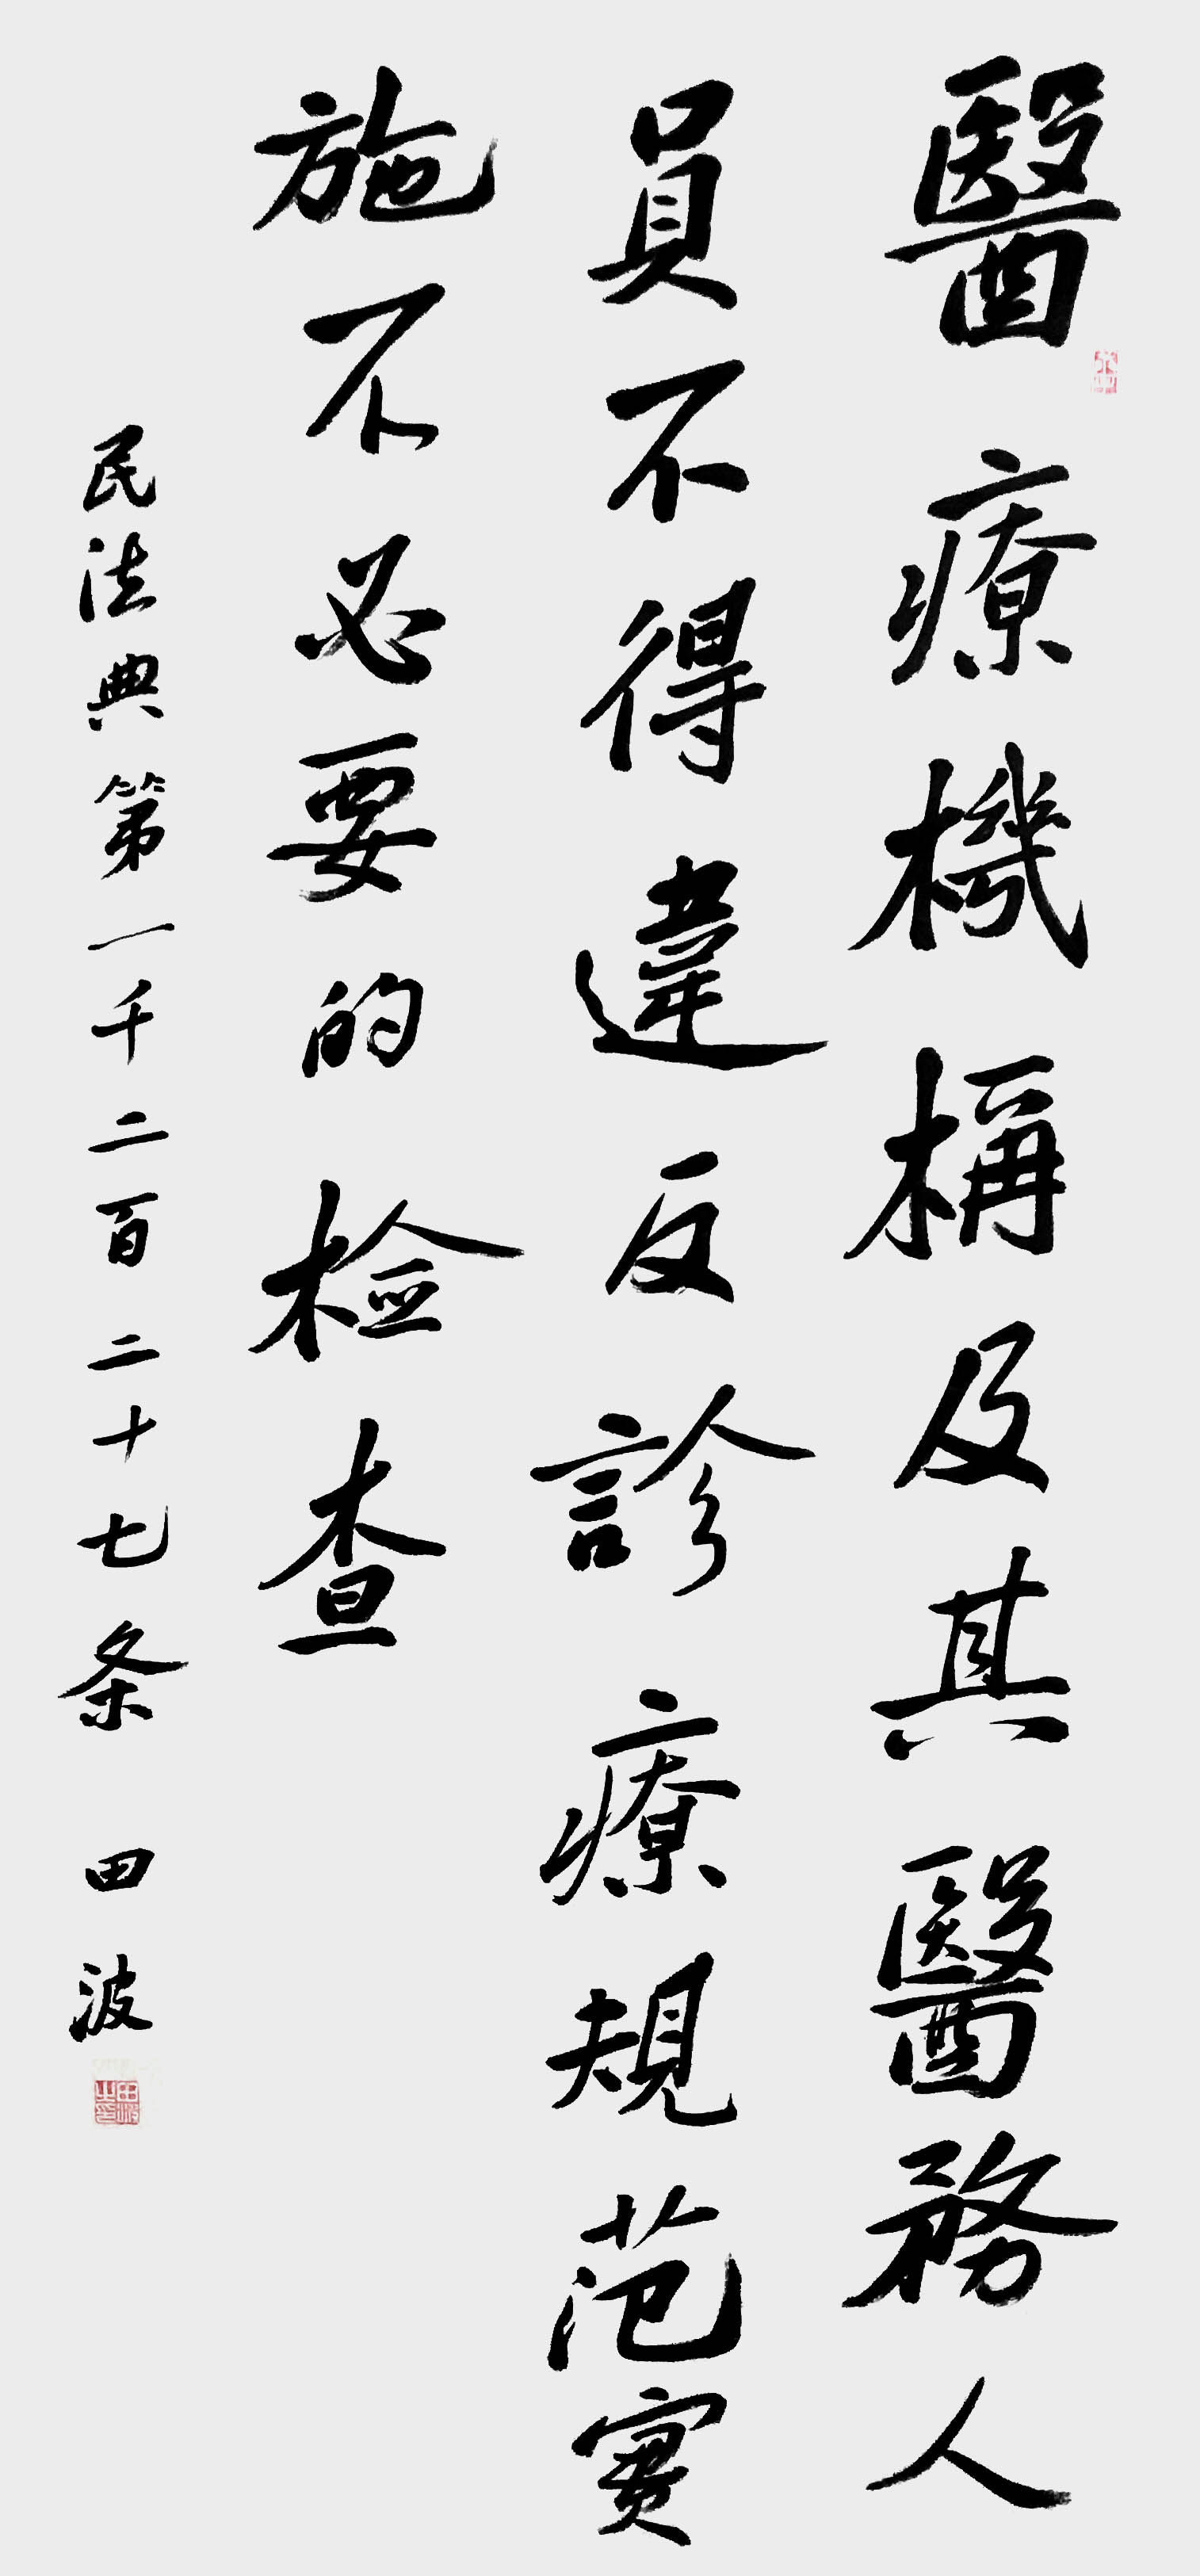 醫療機構及其醫務人
員不得違反診療規范實
施不必要的检查
民法典第一千二百二十七条 田波